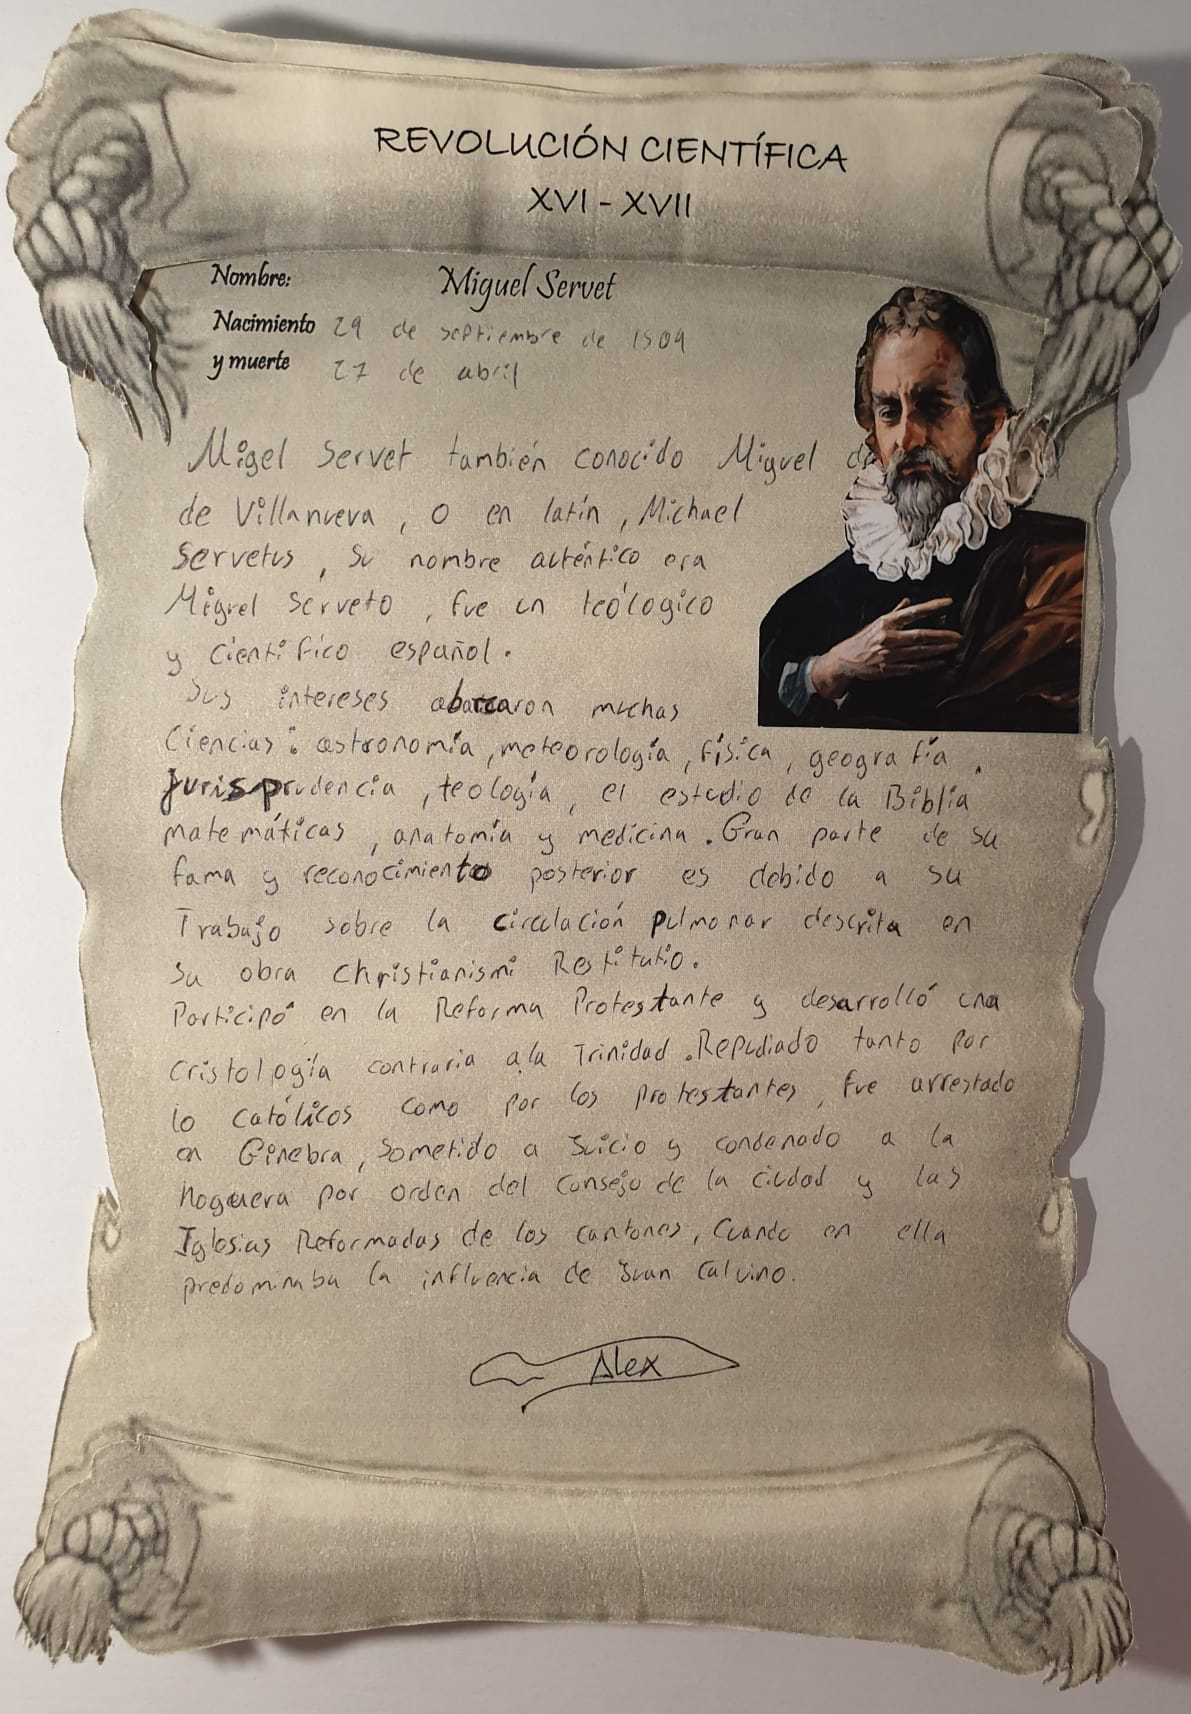 REVOLUCIÓN CIENTÍFICA
XVI - XVII
Nombre: Miguel Servet
Nacimiento 29 de septiembre de 1509
y muerte 27 de abril
Migel Servet también conocido Miguel de
de Villanueva, o en latín, Michael
Servetus, Su nombre auténtico era
Miguel Serveto, fue un teólogico
y cientifico español.
Sus intereses abarcaron muchas
Ciencias: astronomía, meteorología, física, geografía,
Jurisprudencia, teología, el estudio de la Biblia
matemáticas, anatomía y medicina. Gran parte de su
fama y reconocimiento posterior es debido a su
Trabajo sobre la circulación pulmonar descrita en
Su obra Christianismi Restitutio.
Participó en la Reforma Protestante y desarrolló una
cristología contraria a la Trinidad. Repudiado tanto por
lo católicos como por los Protestantes, fue arrestado
en Ginebra, Sometido a Juicio y condenado a la
hoguera por orden del Consejo de la ciudad y las
Iglesias Reformadas de los cantones, Cuando en ella
predominaba la influencia de Juan Calvino.
Alex